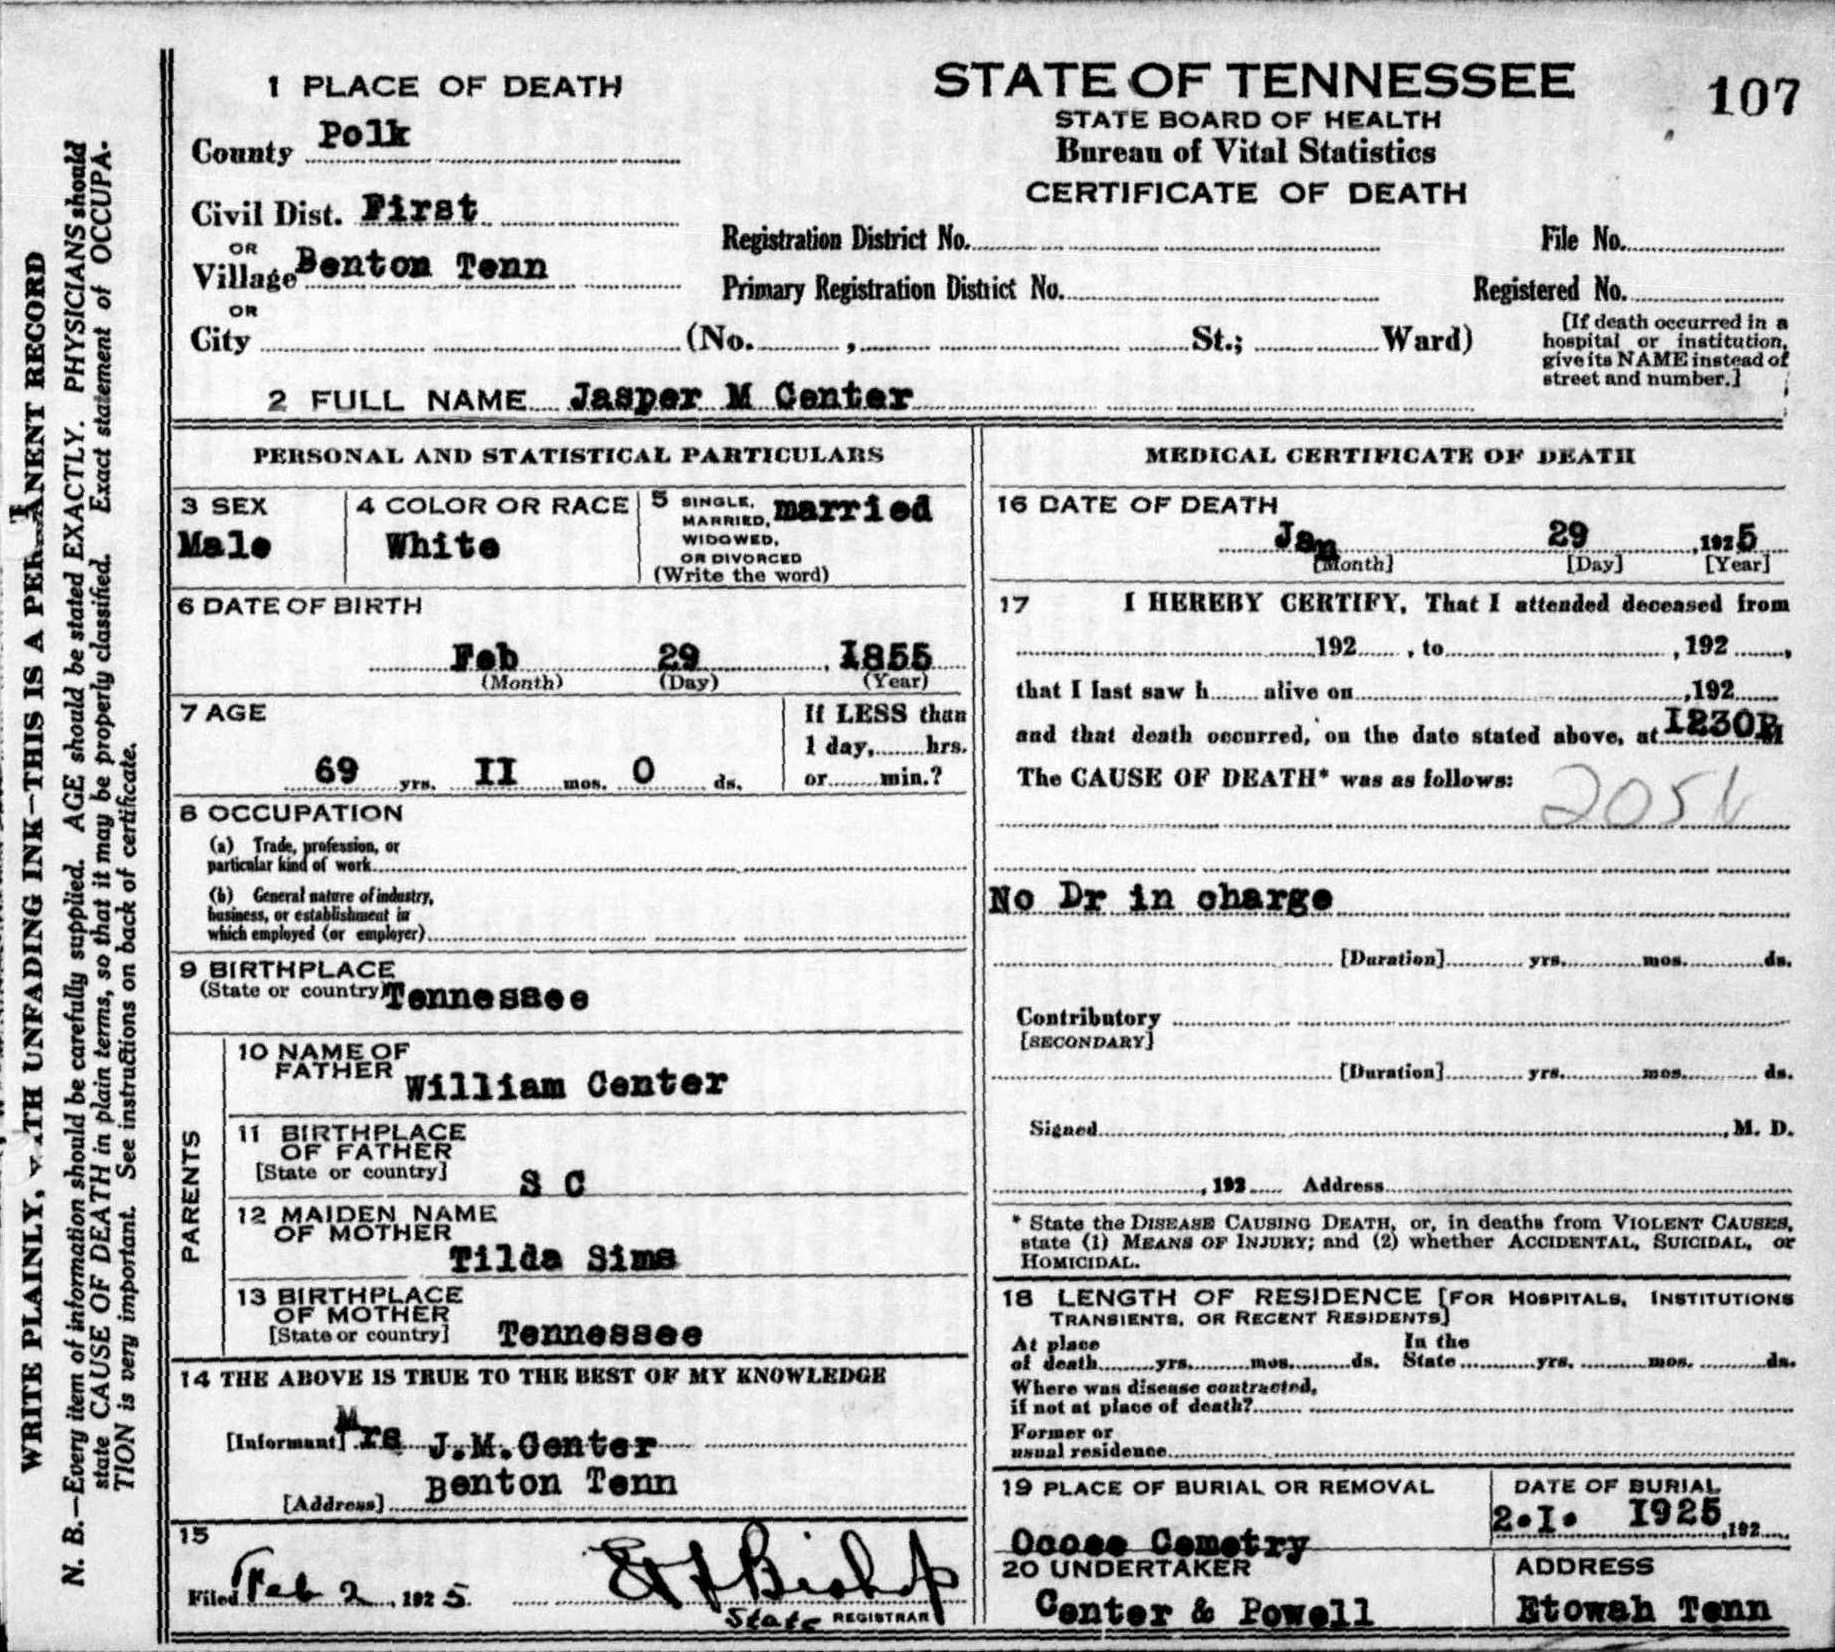 1 PLACE OF DEATH
County Polk
Civil Dist. First
OR
Village Benton Tenn
OR
City (No. , St.; Ward)
2 FULL NAME Jasper M Center
STATE OF TENNESSEE
STATE BOARD OF HEALTH
Bureau of Vital Statistics
CERTIFICATE OF DEATH
107
Registration District No. File No.
Primary Registration District No. Registered No.
[If death occurred in a
hospital or institution,
give its NAME instead of
street and number.]
WRITE PLAINLY, WITH UNFADING INK—THIS IS A PERMANENT RECORD
N. B.—Every item of information should be carefully supplied. AGE should be stated EXACTLY. PHYSICIANS should
state CAUSE OF DEATH in plain terms, so that it may be properly classified. Exact statement of OCCUPA-
TION is very important. See instructions on back of certificate.
PERSONAL AND STATISTICAL PARTICULARS
3 SEX
Male
4 COLOR OR RACE
White
5 SINGLE,
MARRIED,
WIDOWED,
OR DIVORCED
(Write the word)
married
6 DATE OF BIRTH
Feb 29 , I855
(Month) (Day) (Year)
7 AGE
69 yrs. II mos. 0 ds.
If LESS than
1 day, hrs.
or min.?
8 OCCUPATION
(a) Trade, profession, or
particular kind of work
(b) General nature of industry,
business, or establishment in
which employed (or employer)
9 BIRTHPLACE
(State or country) Tennessee
PARENTS
10 NAME OF
FATHER William Center
11 BIRTHPLACE
OF FATHER
[State or country] S C
12 MAIDEN NAME
OF MOTHER
Tilda Sims
13 BIRTHPLACE
OF MOTHER
[State or country] Tennessee
14 THE ABOVE IS TRUE TO THE BEST OF MY KNOWLEDGE
[Informant] Mrs J.M.Center
[Address] Benton Tenn
15
Filed Feb 2, 1925. E F Bishop
State REGISTRAR
MEDICAL CERTIFICATE OF DEATH
16 DATE OF DEATH
Jan 29 , 1925
[Month] [Day] [Year]
17 I HEREBY CERTIFY, That I attended deceased from
192 , to , 192 ,
that I last saw h alive on ,192
and that death occurred, on the date stated above, at I230P M
The CAUSE OF DEATH* was as follows:
205
No Dr in charge
[Duration] yrs. mos. ds.
Contributory
[SECONDARY]
[Duration] yrs. mos. ds.
Signed , M. D.
, 192 Address
* State the DISEASE CAUSING DEATH, or, in deaths from VIOLENT CAUSES,
state (1) MEANS OF INJURY; and (2) whether ACCIDENTAL, SUICIDAL, or
HOMICIDAL.
18 LENGTH OF RESIDENCE [FOR HOSPITALS, INSTITUTIONS
TRANSIENTS, OR RECENT RESIDENTS]
At place In the
of death yrs. mos. ds. State yrs. mos. ds.
Where was disease contracted,
if not at place of death?
Former or
usual residence
19 PLACE OF BURIAL OR REMOVAL
Ocoee Cemetry
DATE OF BURIAL
2.I. I925 , 192
20 UNDERTAKER
Center & Powell
ADDRESS
Etowah Tenn